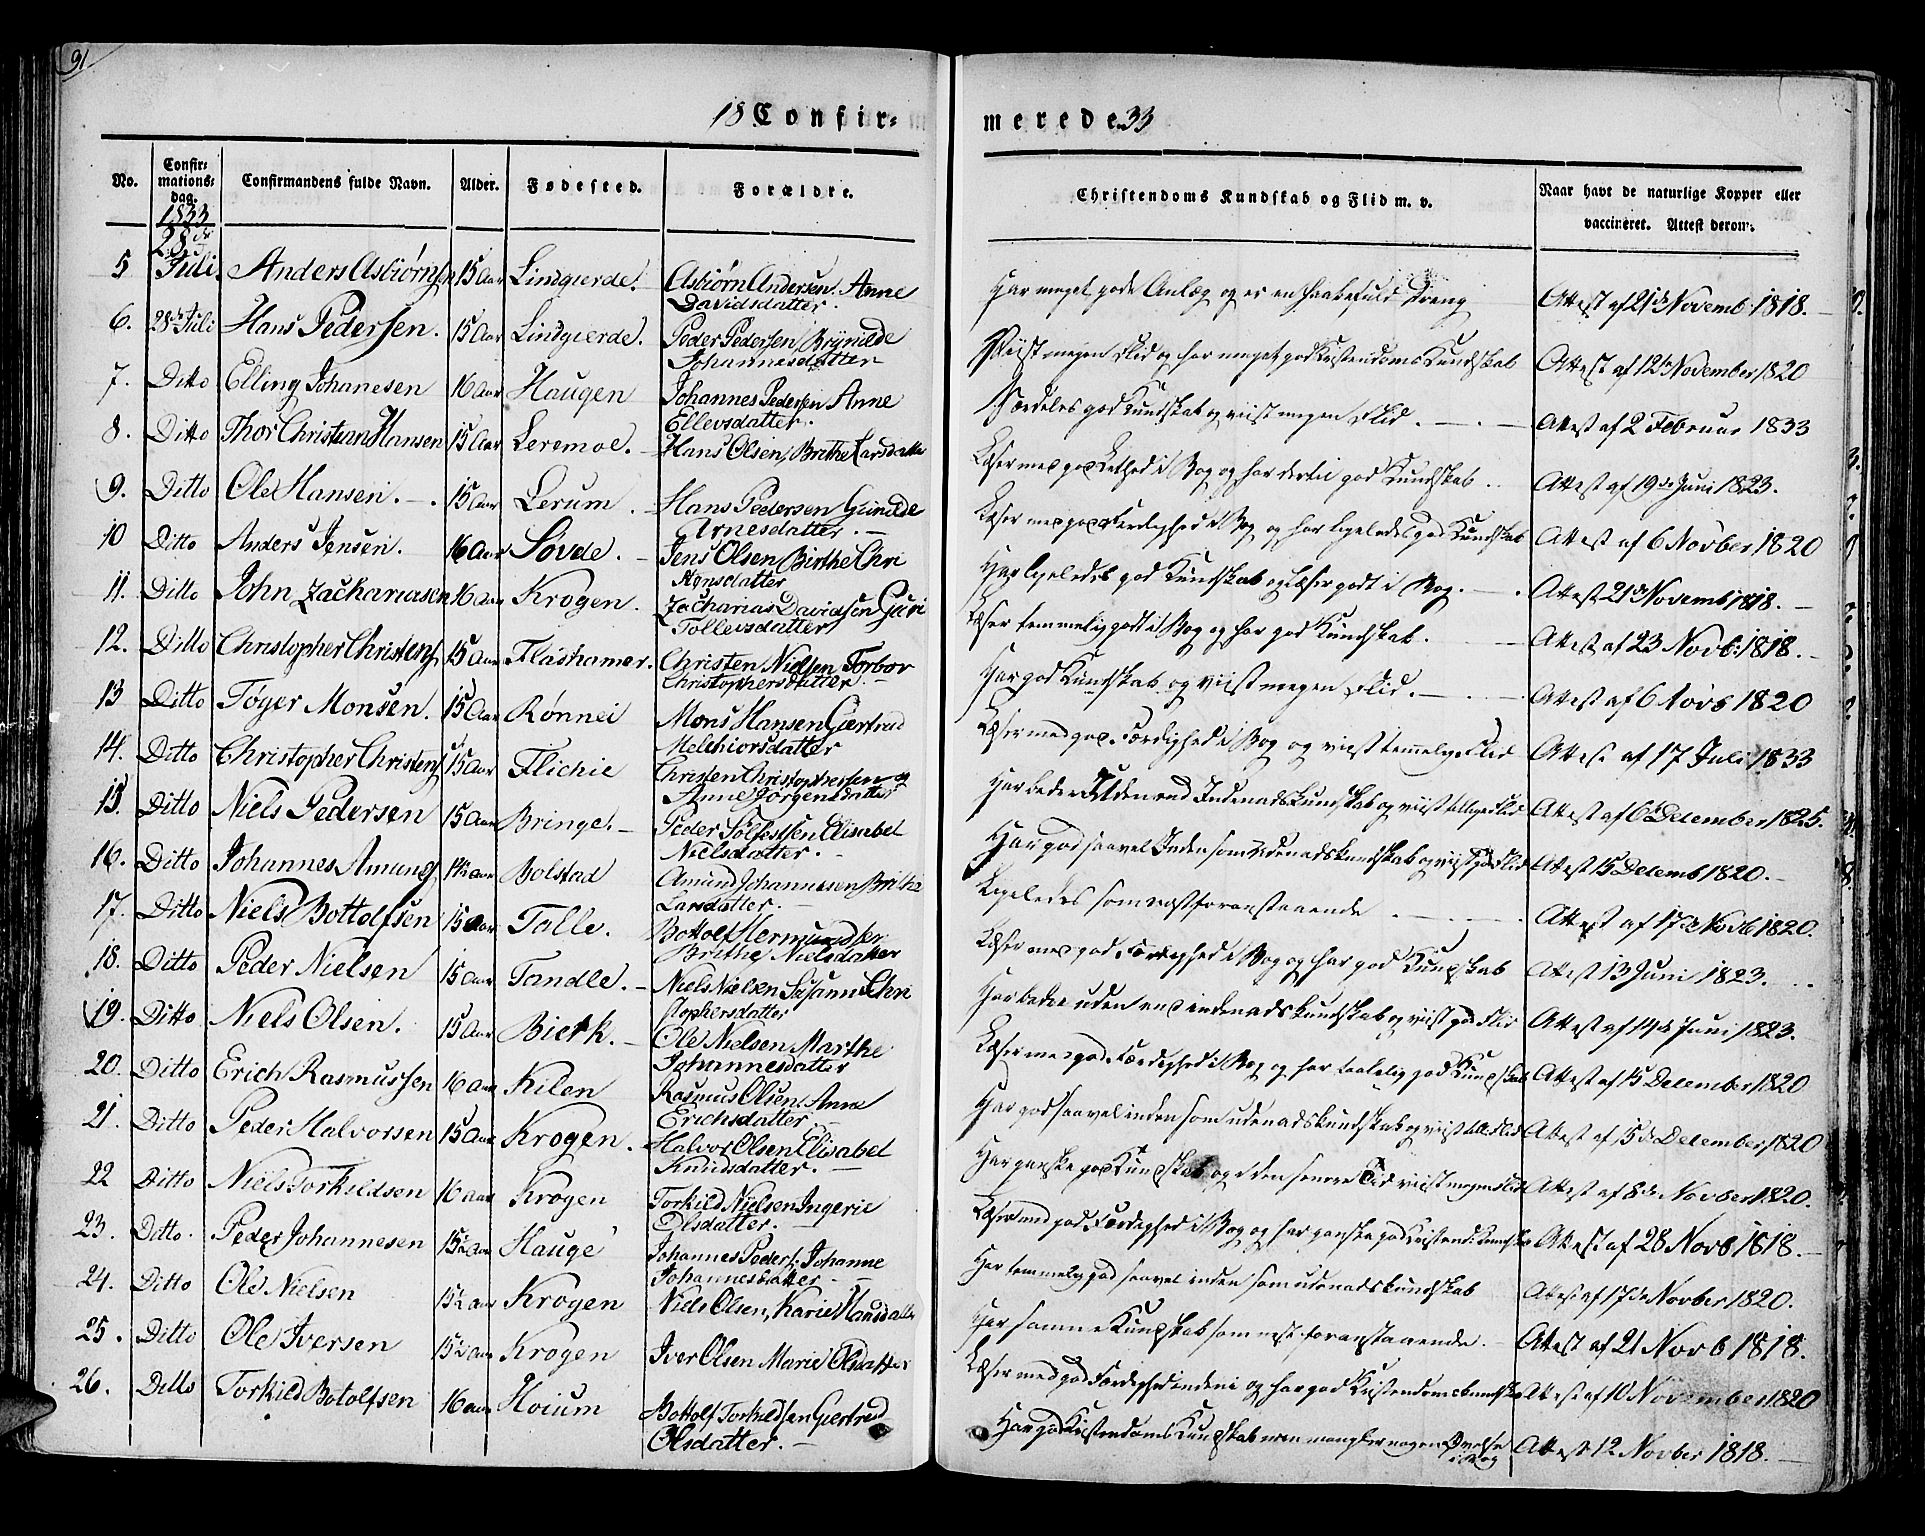 91
18 Confir=
merede 33
No.
Confir=
mations=
dag.
Confirmandens fulde Navn.
Alder.
Fødested.
Forældre.
Christendoms Kundskab og Flid m. v.
Naar havt de naturlige Kopper eller
vaccineret. Attest derom.
1833
28de
5 Juli. Anders Asbiørnsen 15 Aar Lindgierde. Asbiørn Andersen. Anne
Davidsdatter. Har meget gode Anlæg og er en haabefuld Dreng Attest af 21de Novemb: 1818.
6. 28de Juli Hans Pedersen. 15 Aar Lindgierde. Peder Pedersen Brynilde
Johannesdatter Viist megen Flid og har meget god Kristendoms Kundskab Attest af 12te November 1820
7. Ditto Elling Johanesen 16 Aar Haugen Johannes Pedersen Anne
Ellevsdatter. Særdeles god Kundskab og viist megen Flid. Attest af 2 Februar 1833
8. Ditto Thor Christian Hansen 15 Aar Leremoe. Hans Olsen, Brithe Larsdatter
Læser med god Lethed i Bog og har dertil god Kundskab Attest af 19de Juni 1823.
9. Ditto Ole Hansen. 15 Aar Lerum. Hans Pedersen Gunilde
Arnesdatter. Læser med god Færdighed i Bog og har ligeledes god Kundskab Attest af 6 Novber 1820
10 Ditto Anders Jensen. 16 Aar Sovde. Jens Olsen Birthe Chri
stensdatter Har ligeledes god Kundskab og læser godt i Bog. Attest 21de Novemb 1818.
11. Ditto John Zachariasen 16 Aar Krogen. Zacharias Davidsen Guri
Tollevsdatter Læser temmelig godt i Bog og har god Kundskab. Attest af 23 Novb: 1818.
12. Ditto Christopher Christens 15 Aar Flashamer. Christen Nielsen Torbor
Christophersdatter. Har god Kundskab og viist megen Flid. Attest af 6 Novb 1820
13 Ditto Tøger Monsen. 15 Aar Rønnei Mons Hansen Giertrud
Melchiorsdatter Læser med god Færdighed i Bog og viist temmelig Flid Attest af 17 Juli 1833
14. Ditto Christopher Christens 15 Aar Flichie Christen Christophersen og
Anne Jørgensdatter Har bedre Uden end Indenadskundskab og viist tillige Flid Attest af 6te December 1825.
15. Ditto Niels Pedersen 15 Aar Bringe. Peder Sølfestsen Elisabet
Nielsdatter. Har god saavel Inden som Udenadskundskab og viist god Flid Attest 15 Decemb 1820.
16. Ditto Johannes Amung 14½ Aar Bolstad Amund Johannesen Brithe
Larsdatter. Ligeledes som næstforanstaaende Attest af 17de Novb 1820.
17. Ditto Niels Bottolfsen 15 Aar Tolle. Bottolf Hermundsen
Brithe Nielsdatter Læser med god Færdighed i Bog og har god Kundskab Attest 13 Juni 1823.
18. Ditto Peder Nielsen 15 Aar Tandle. Niels Nielsen Susanne Chri
stophersdatter Har bedre uden end indenadskundskab og viist god Flid Attest af 14de Juni 1823.
19. Ditto Niels Olsen. 15 Aar Bierk. Ole Nielsen Marthe
Johannesdatter Læser med god Færdighed i Bog og har taalelig god Kundskab Attest af 15 December 1820
20. Ditto Erich Rasmussen 16 Aar Kilen Rasmus Olsen Anna
Erichsdatter Har god saavel inden som udenadskundskab og viist tillige Flid Attest af 15de December, 1820
21. Ditto Peder Halvorsen 15 Aar Krogen. Halvor Olsen Elisabet
Knudsdatter. Har ganske god Kundskab og i den senere Tid viist megen Flid Attest af 8de Novber 1820.
22 Ditto Niels Torkildsen 16 Aar Krogen Torkild Nielsen Ingerie
Olsdatter. Læser med god Færdighed i Bog og har ganske god Kristend: Kundskab Attest af 28 Novb 1818.
23. Ditto. Peder Johannesen 15½ Aar Hauge Johannes Peders. Johanne
Johannesdatter Har temmelig god saavel inden som udenadskundskab Attest af 17de Novber 1820.
24. Ditto Ole Nielsen 15½ Aar Krogen Niels Olsen, Karie Hansdatter
Har samme Kundskab som næst foranstaaende. Attest af 21 Novb 1818.
25. Ditto Ole Iversen 15½ Aar Krogen Iver Olsen Marie Olsdatter
Læser med god Færdighed indeni og har god Kristendomskundskab Attest af 10 November 1820
26. Ditto Torkild Botolfsen 16 Aar Hoium Bottolf Torkildsen Giertrud
Olsdatter. Har god Kristendoms Kundskab men mangler nogen Øvelse
i Bog Attest 12 Novber 1818.